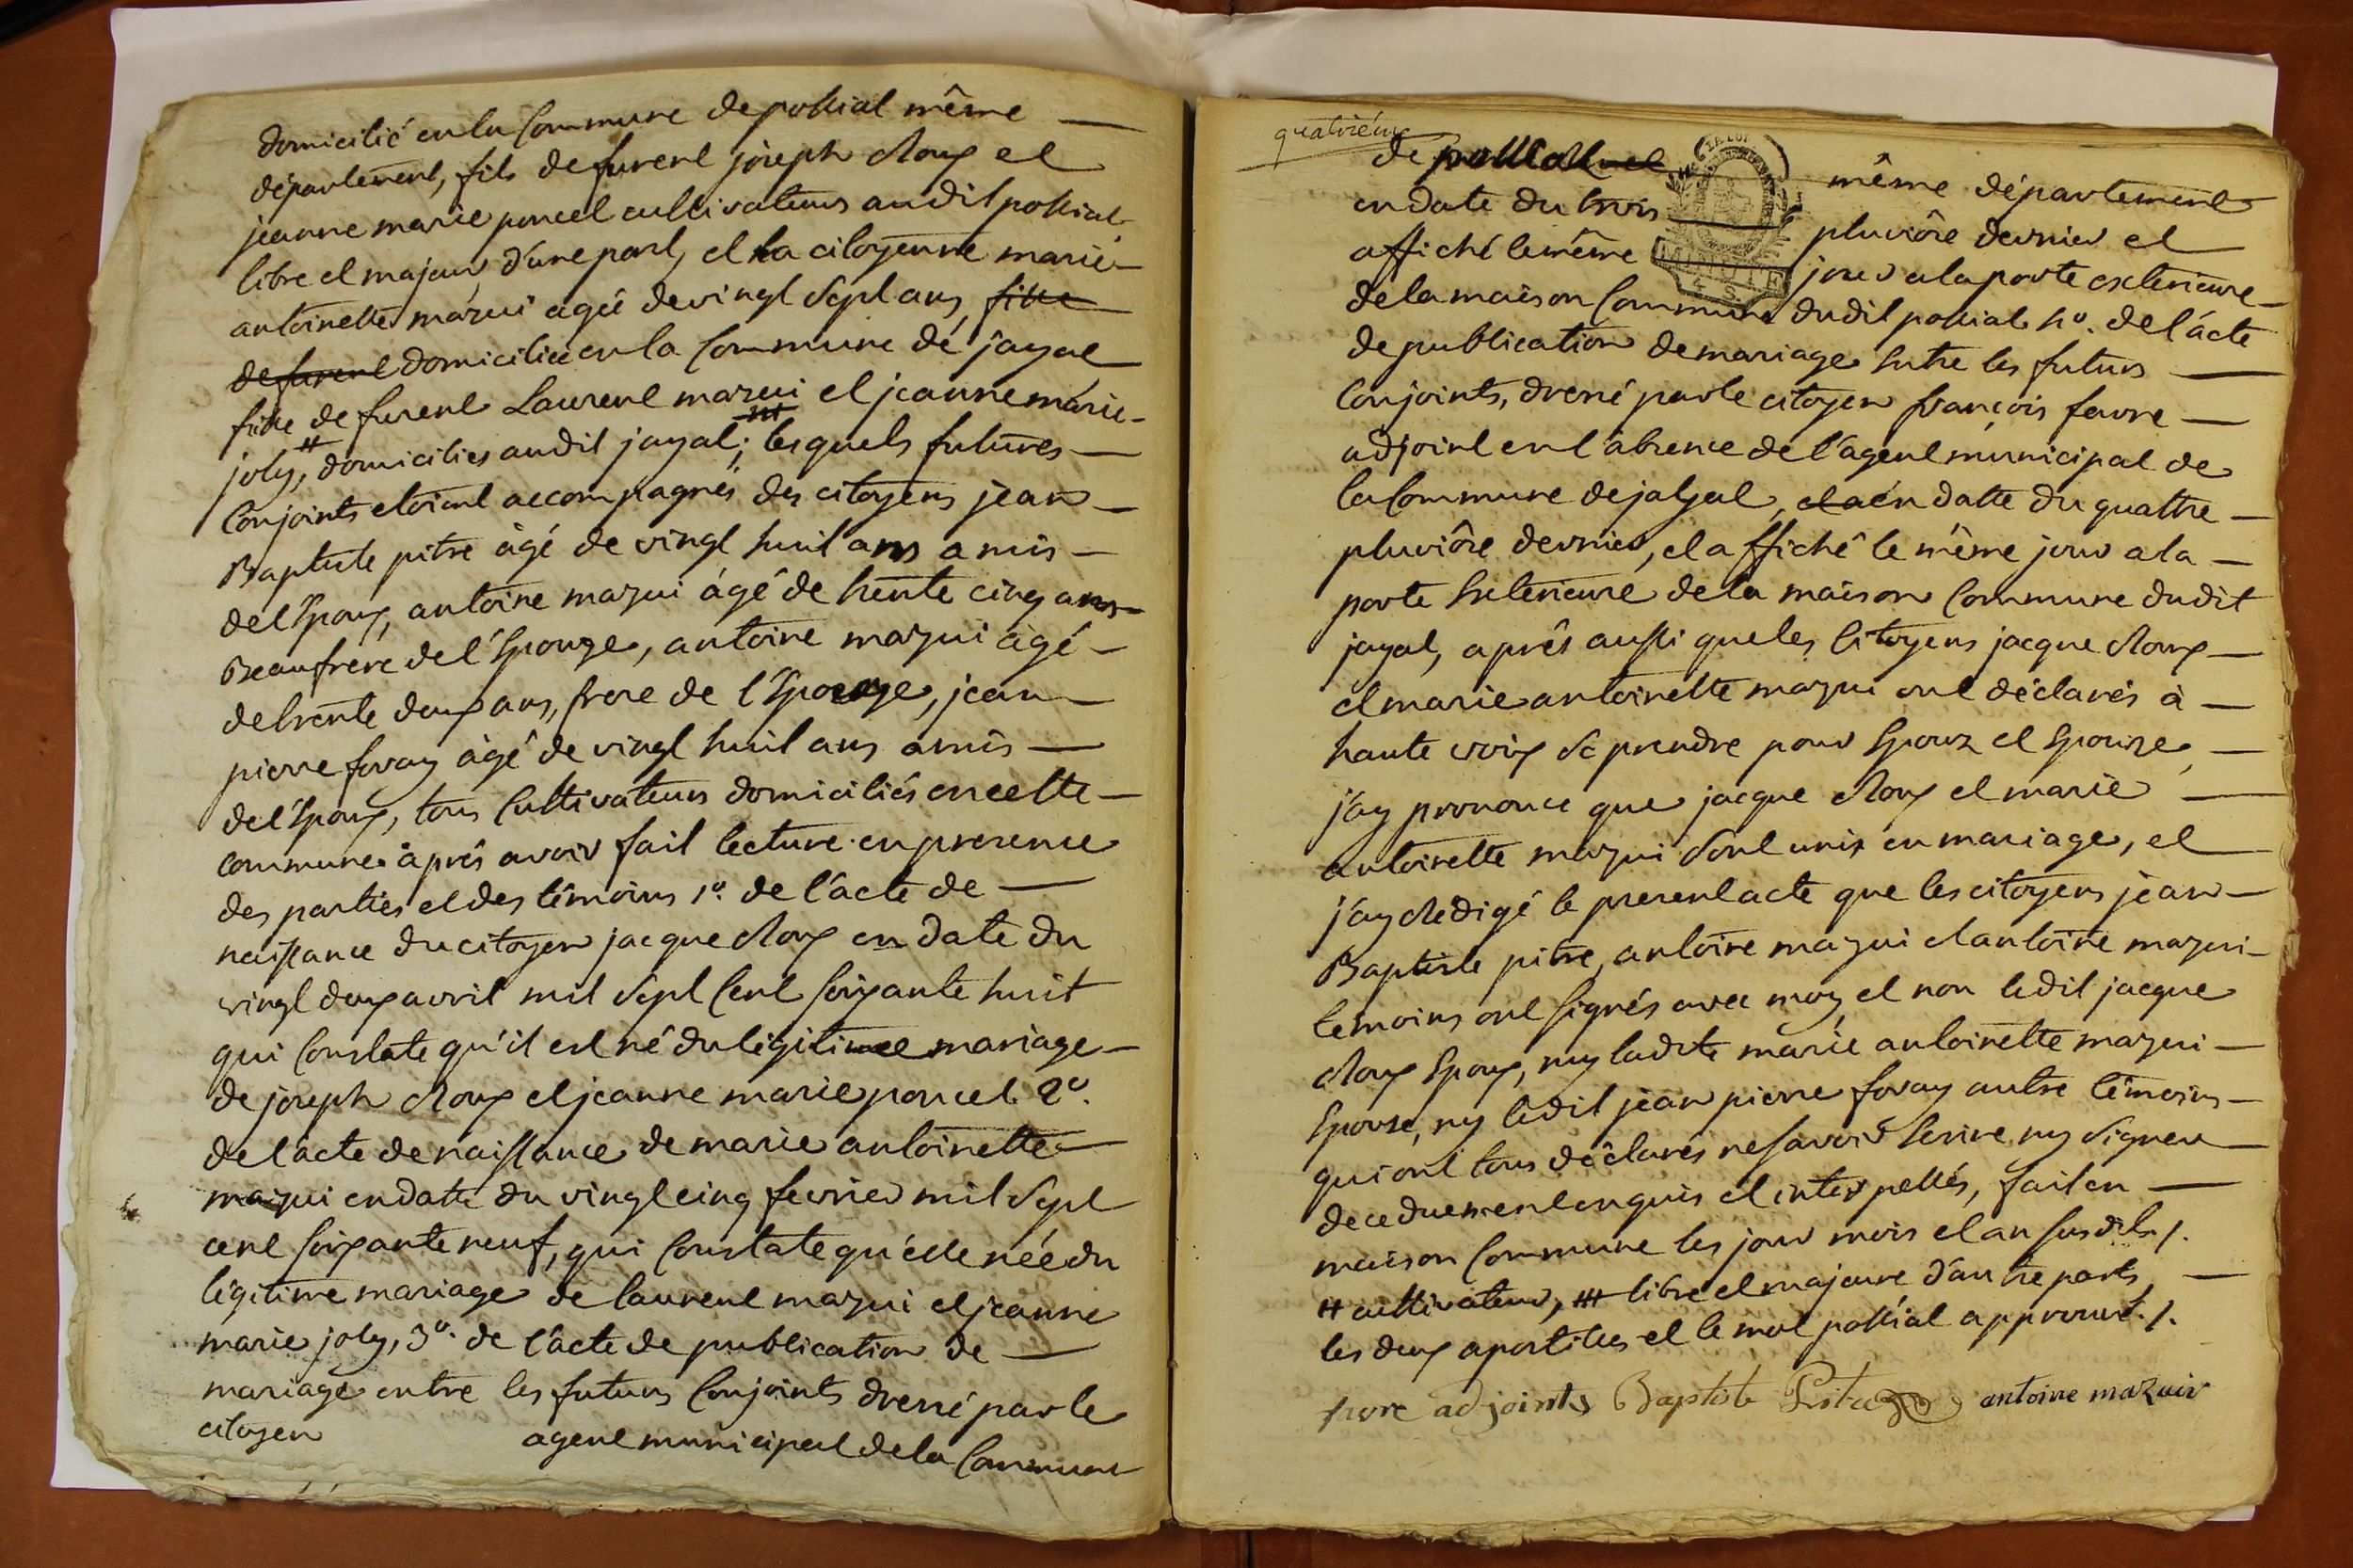 domicilié en la Commune de pollial même
département, fils de furent joseph Roux et
jeanne marie poncet cultivateurs audit pollial
libre et majeur, d'une part, et la citoyenne marie
antoinette mazui agée de vingt Sept ans, fille
de furent domiciliée en la Commune de jayat
fille de furent Laurent mazui et jeanne marie
joly, # domiciliés audit jayat; ### lesquels futures
Conjoints etoient accompagnés des citoyens jean
Baptiste pitre âgé de vingt huit ans amis
de l'Epoux, antoine mazui âgé de trente cinq ans
Beaufrere de l'Epouze, antoine mazui âgé
de trente deux ans, frere de l'Epouze, jean
pierre foray âgé de vingt huit ans amis
de l'Epoux, tous Cultivateurs domiciliés en cette
commune après avoir fait lecture en presence
des parties et des témoins 1º. de l'acte de
naissance du citoyen jacque Roux en date du
vingt deux avril mil Sept Cent soixante huit
qui Constate qu'il est né du légitimee mariage
de joseph Roux et jeanne marie poncet 2º.
de l'acte de naissance de marie antoinette
mazui en date du vingt cinq fevrier mil Sept
cent soixante neuf, qui Constate qu'elle née du
légitime mariage de laurent mazui et jeanne
marie joly, 3º. de l'acte de publication de
mariage entre les futurs Conjoints dressé par le
citoyen agent municipal de la Commune
quatriéme
de pollial même département
en date du trois pluviôse dernier et
affiché le même jour a la porte exterieure
de la maison Commune dudit pollial 4º. de l'acte
de publication de mariage Entre les futurs
Conjoints, dressé par le citoyen françois favre
adjoint en l'absence de l'agent municipal de
la Commune de jayat, et a en datte du quattre
pluviôse dernier, et affiché le même jour a la
porte Exterieure de la maison Commune dudit
jayat, après aussi que les Citoyens jacque Roux
et marie antoinette mazui ont déclarés à
haute voix Se prendre pour Epoux et Epouze,
j'ay prononce que jacque Roux et marie
antoinette mazui Sont unis en mariage, et
j'ay Redigé le present acte que les citoyens jean
Baptiste pitre, antoine mazui et antoine mazui
témoins ont signés avec moy et non ledit jacque
Roux Epoux, ny ladite marie antoinette mazui
Epouse, ny ledit jean pierre foray autre témoins
qui ont tous déclarés ne savoir Ecrire ny Signer
de ce duement enquis et interpellés, fait en
maison Commune les jour mois et an susdits ./.
# cultivateurs, ### libre et majeure d'autre parts,
les deux apostilles et le mot pollial approuvé ./.
favre adjoint Baptiste Pitre antoine mazuir